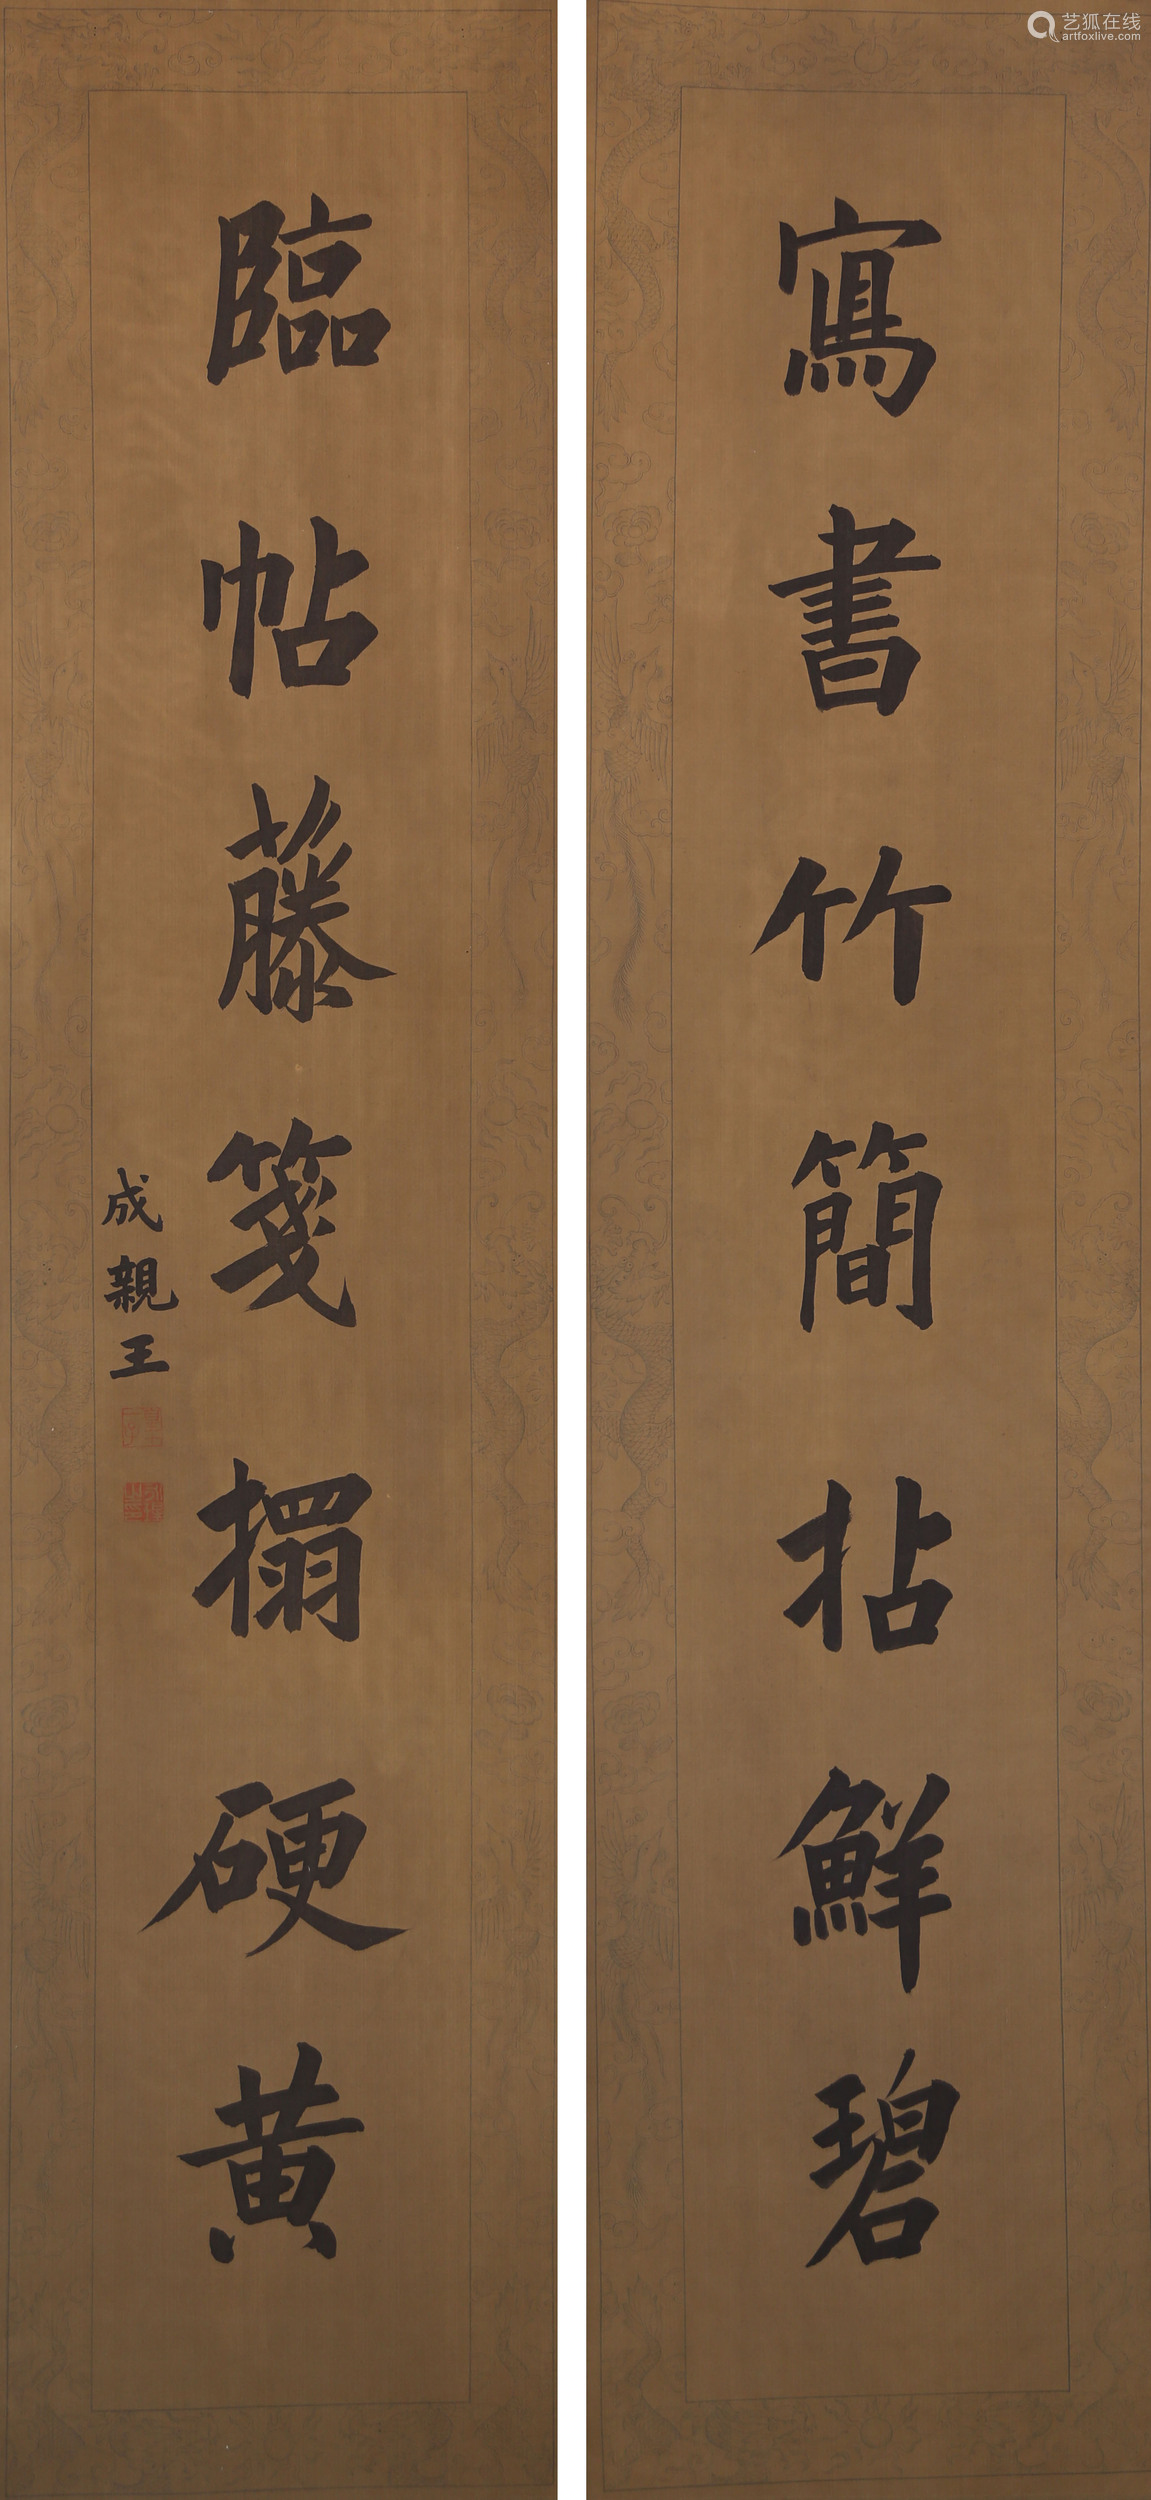 寫書竹簡拈鮮碧
臨帖藤箋搨硬黄
成親王
艺狐在线
artfoxlive.com